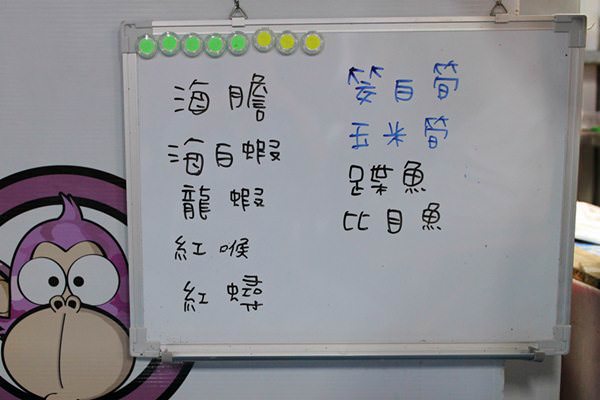 海膽
海白蝦
龍蝦
紅喉
紅蟳
筊白筍
玉米筍
蹀魚
比目魚